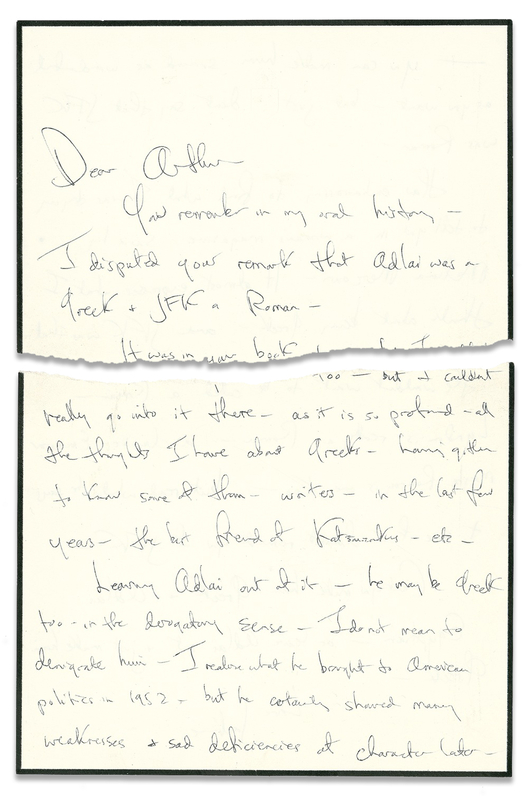 Dear Arthur
You remember in my oral history —
I disputed your remark that Adlai was a
Greek + JFK a Roman —
It was in your book
too — but I couldnt
really go into it there — as it is so profound — all
the thoughts I have about Greeks — having gotten
to know some of them — writers — in the last few
years — the best friend of Katsanzakis — etc —
Leaving Adlai out of it — he may be Greek
too — in the derogatory sense — I do not mean to
denigrate him — I realize what he brought to American
politics in 1952 — but he certainly showed many
weaknesses + sad deficiencies of character later —